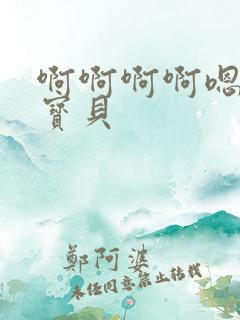 啊啊啊啊嗯
寶貝
鄭阿婆
未经同意禁止转载